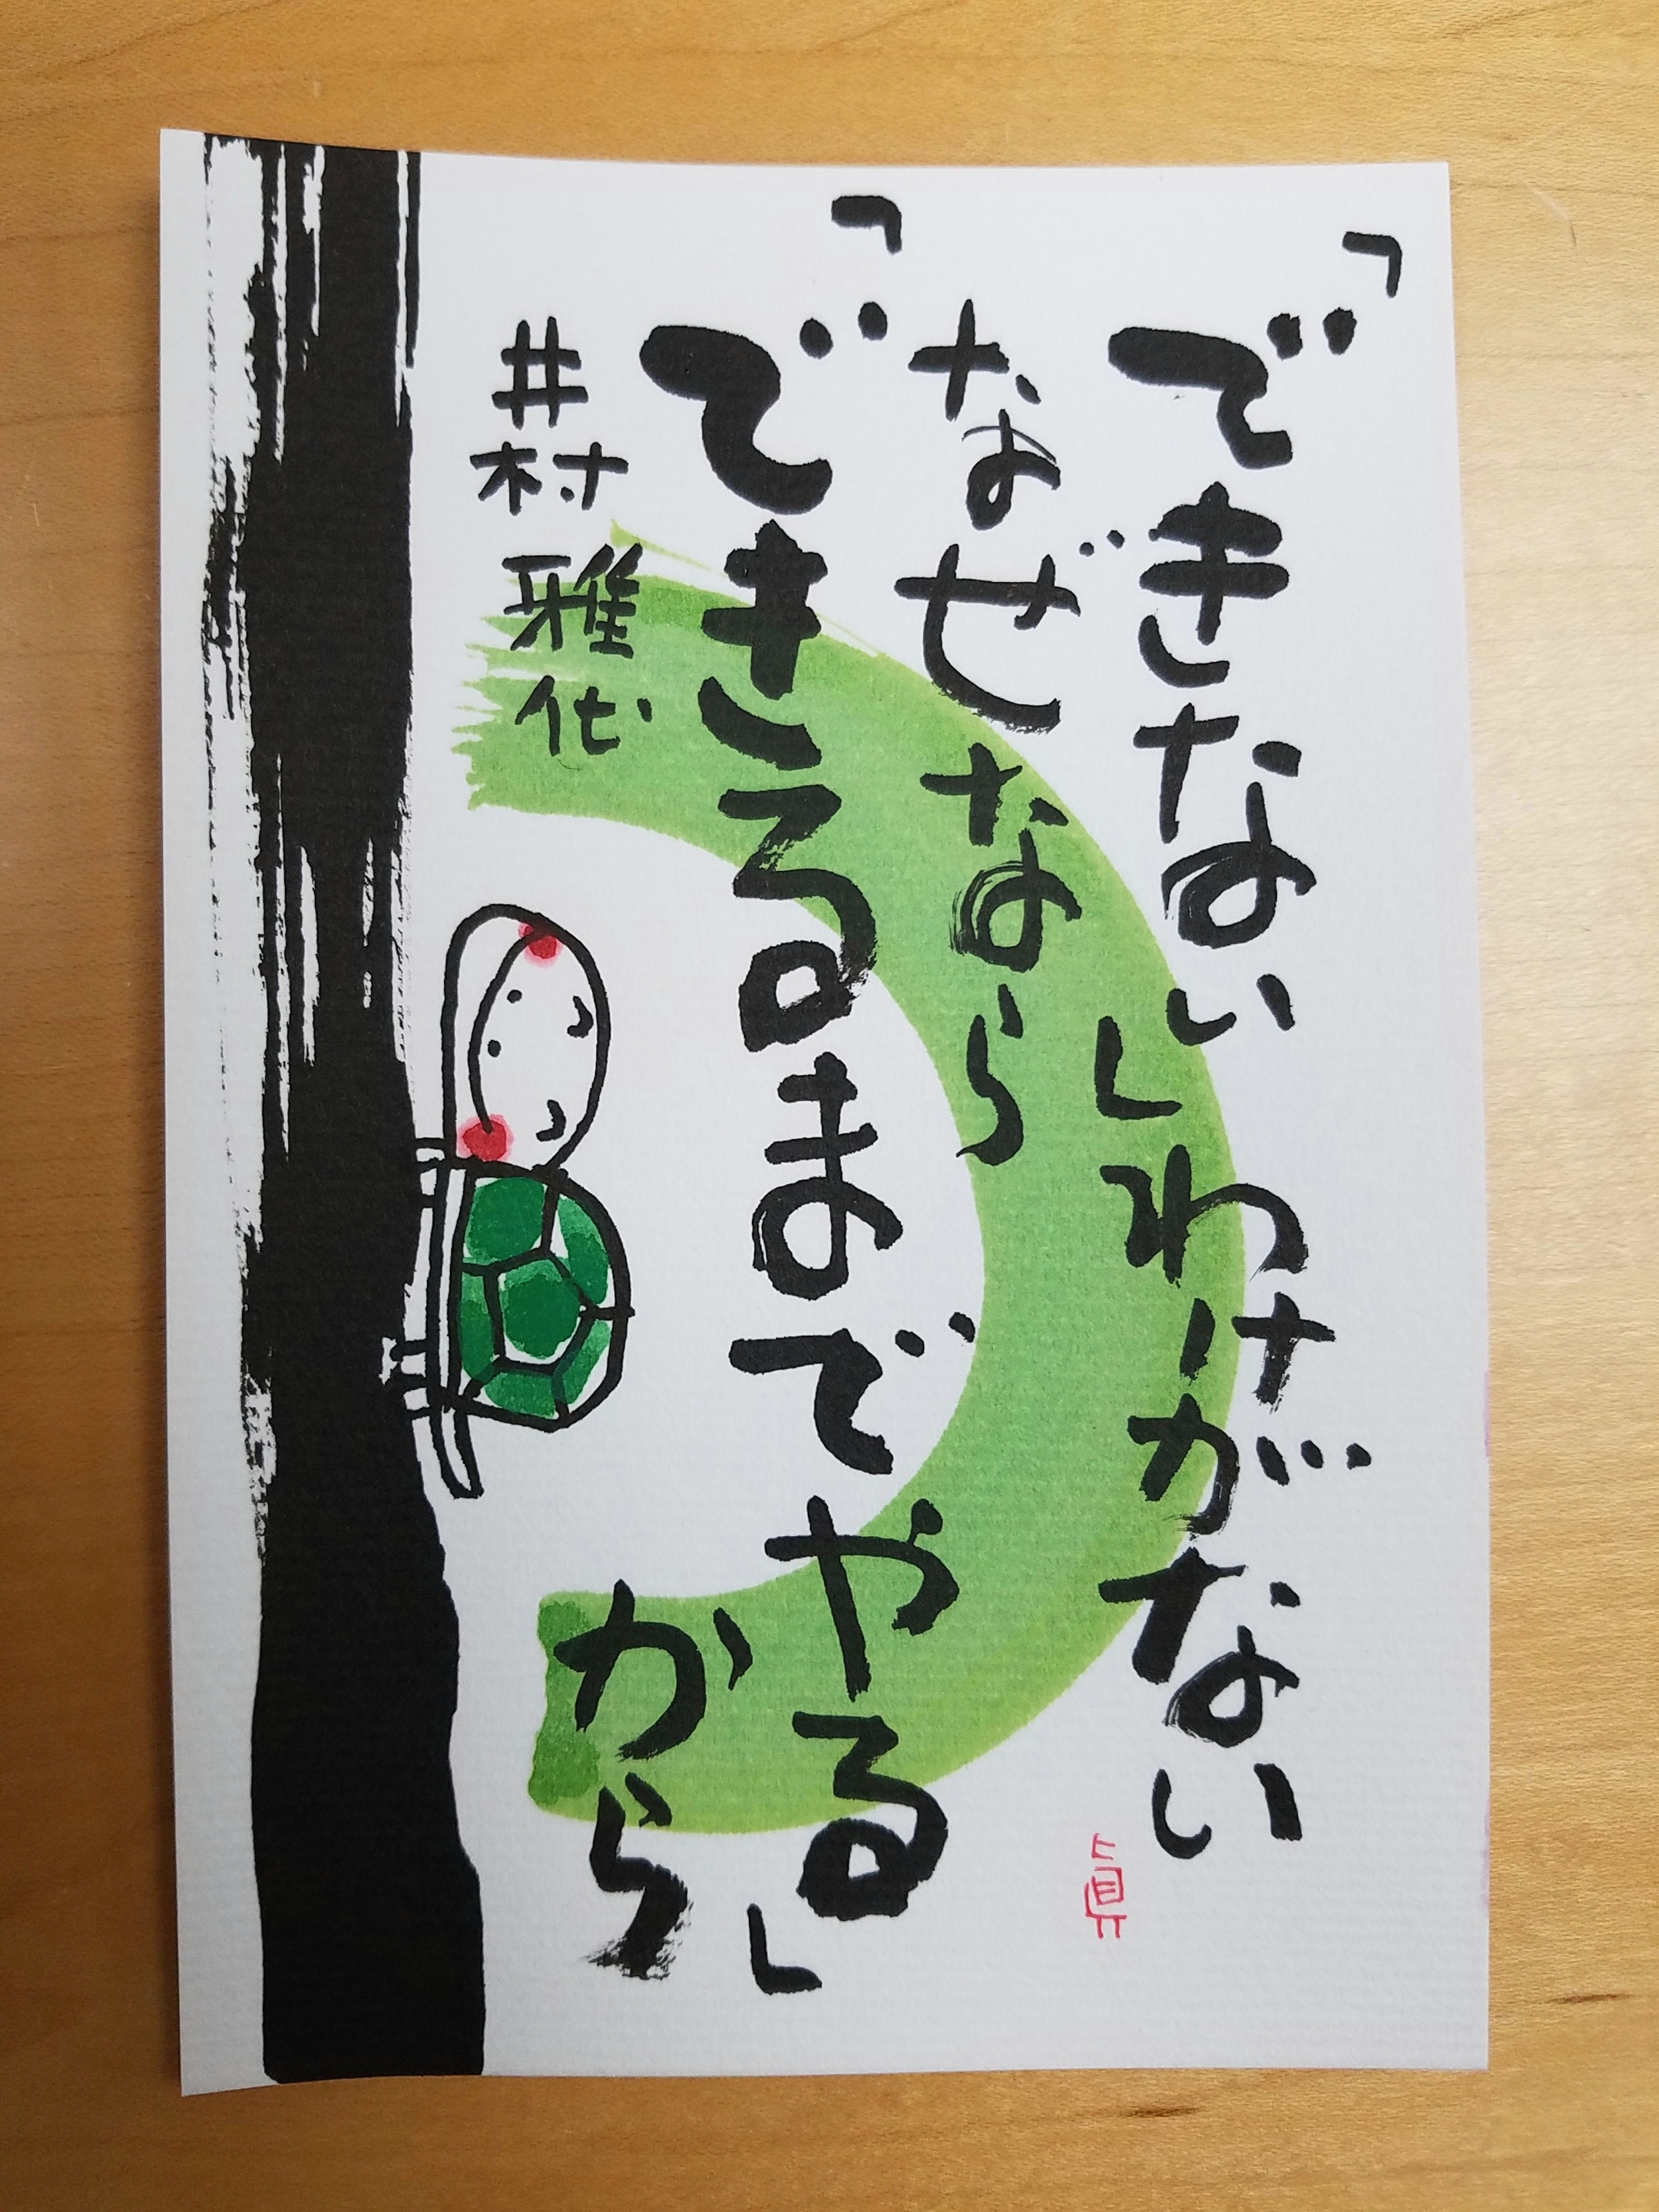 「できない」わけがない
なぜなら
「できるまでやる」
から
井村雅代
貞